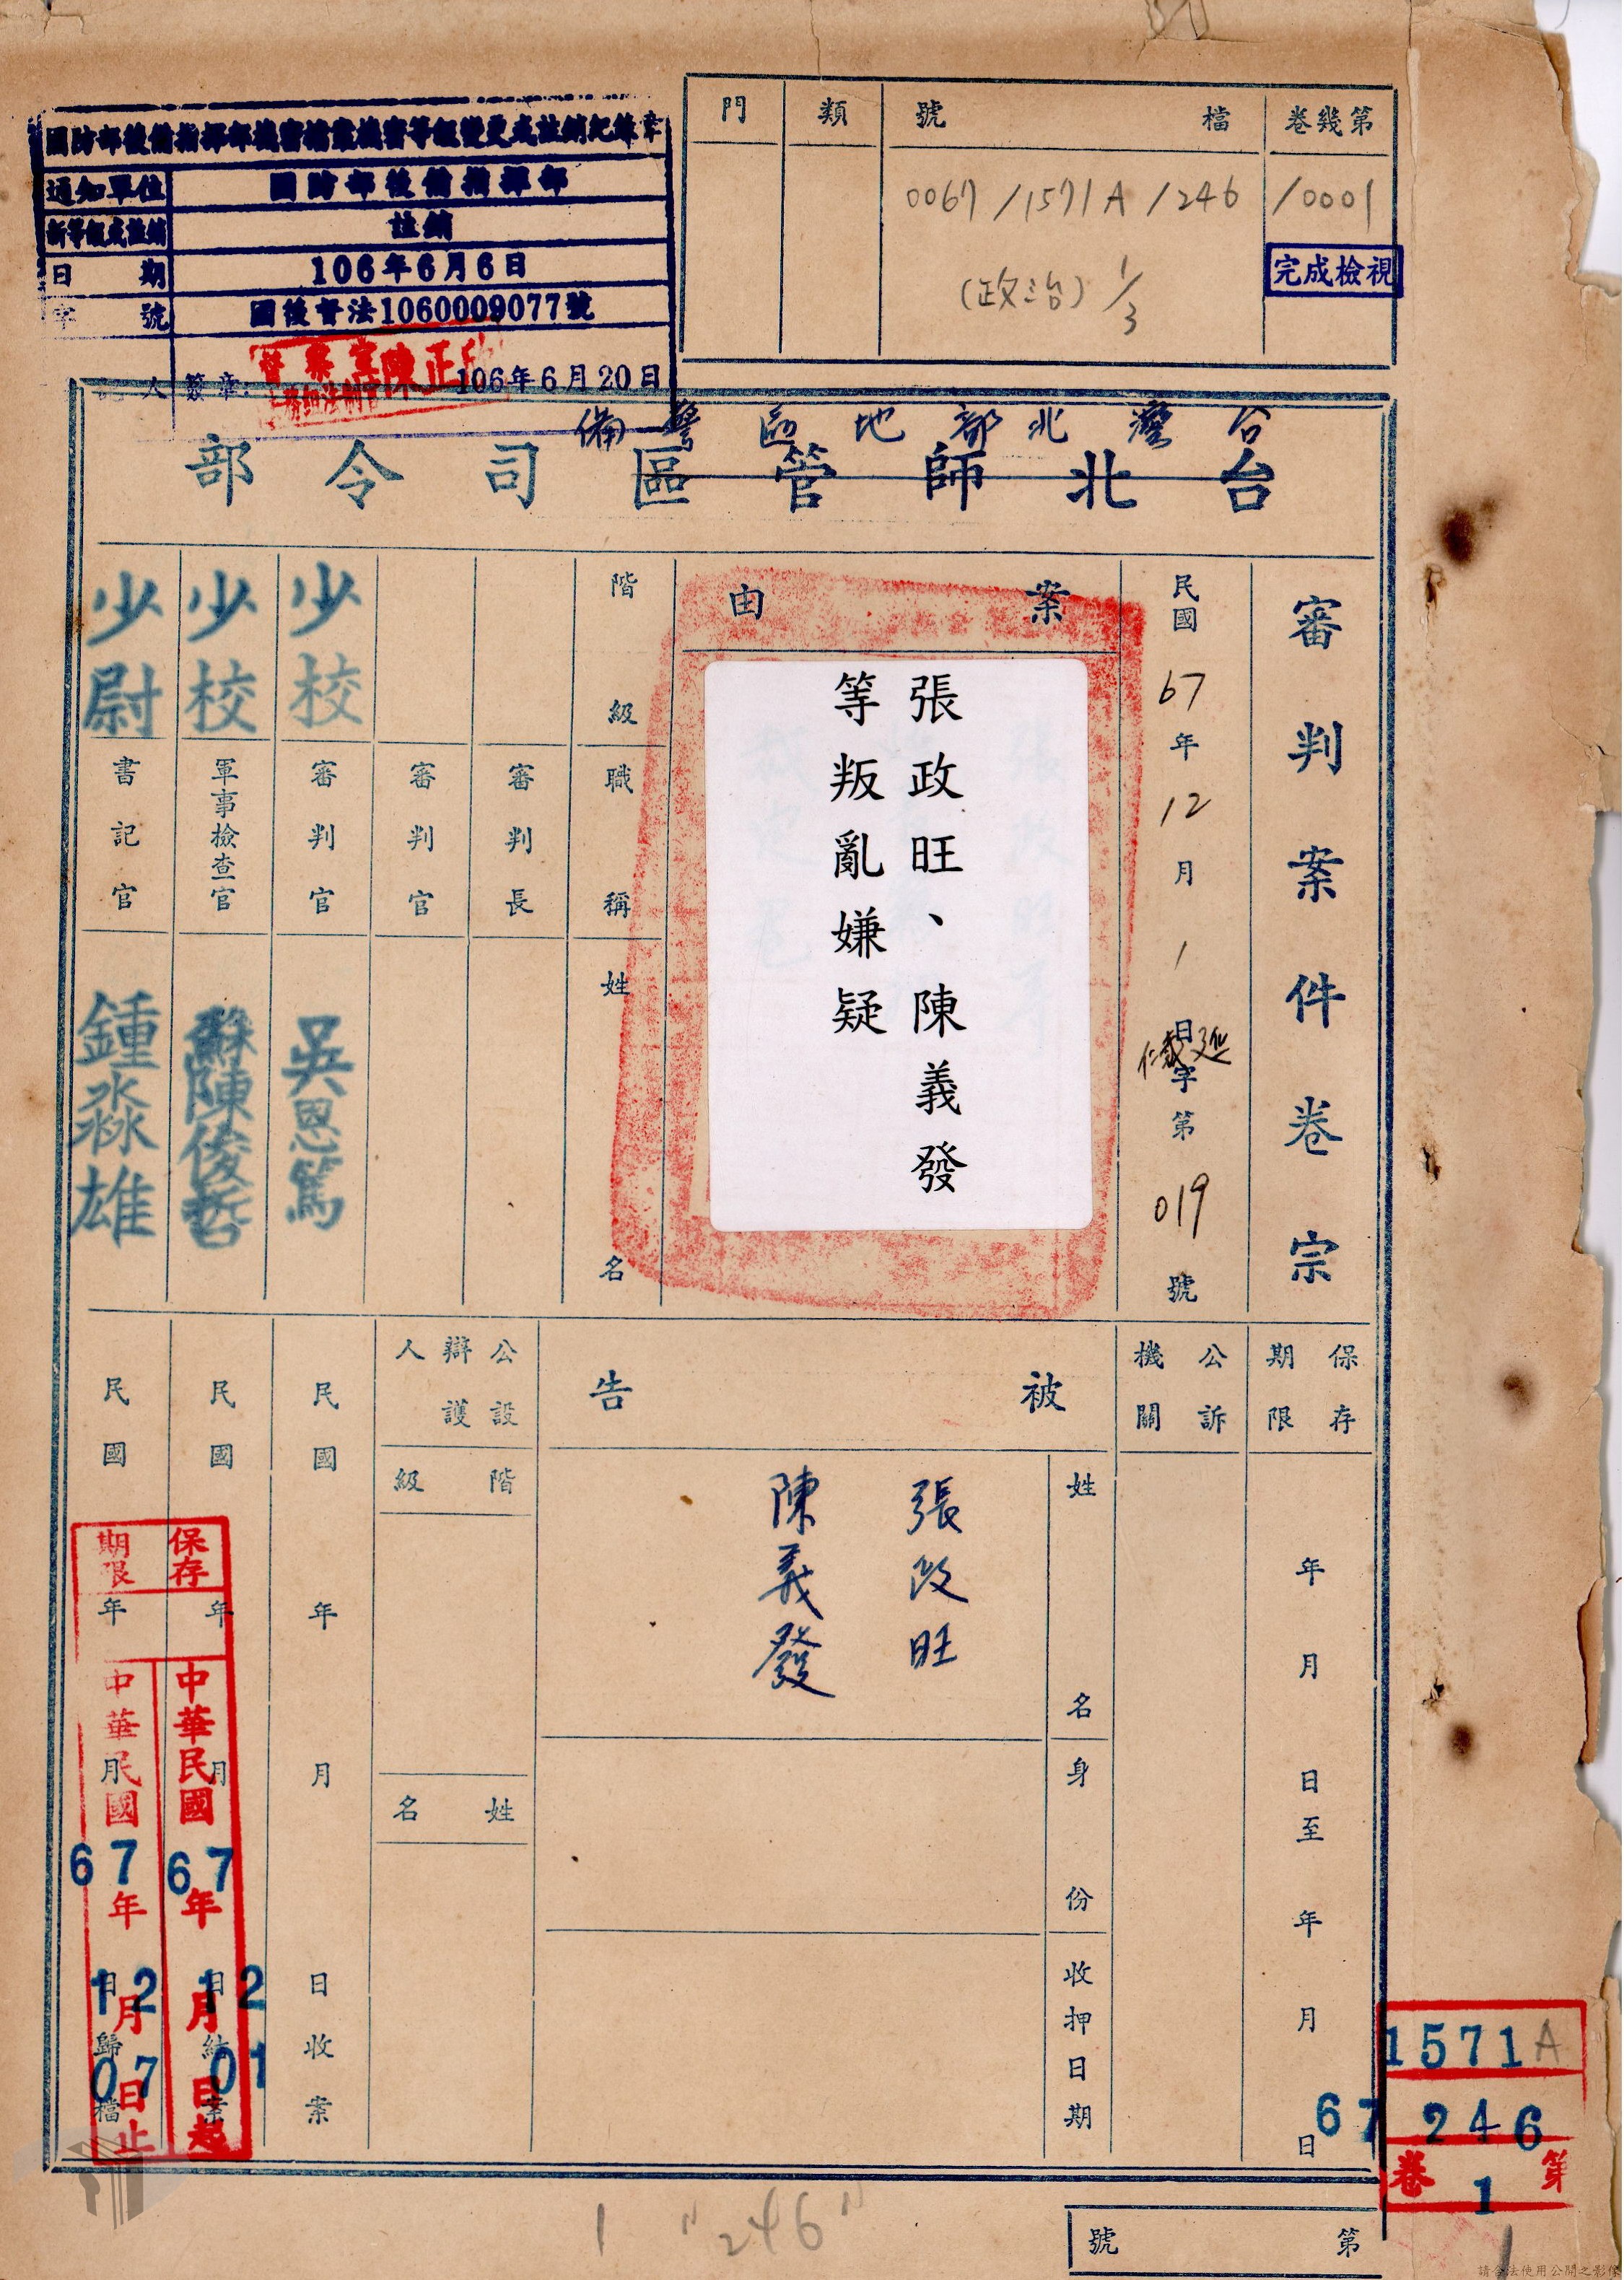 國防部後備指揮部機密檔案機密等級變更或註銷紀錄章
通知單位 國防部後備指揮部
新等級或註銷 註銷
日期 106年6月6日
字號 國後督法1060009077號
人簽章:
督察室 陳正
106年6月20日
門 類 檔號 第幾卷
0067/1571A/246/0001
(政治) 1/3
完成檢視
台灣北部地區警備
台北師管區司令部
審判案件卷宗
民國67年12月1日
字第019號
案由
張政旺、陳義發
等叛亂嫌疑
階級 職稱 姓名
審判長
審判官
少校 審判官 吳恩篤
少校 軍事檢查官 陳俊哲
少尉 書記官 鍾淼雄
保存期限
年月日至年月日
公訴機關
被告
姓名
張政旺
陳義發
身份
收押日期
公設辯護人
階級
姓名
民國 年 月 日收案
民國 年 月 日結案
民國 年 月 日歸檔
保存期限
中華民國67年12月01日起
中華民國67年12月07日止
1571A
67 246
第1卷
1 "246"
第 號
1
請合法使用公開之影像